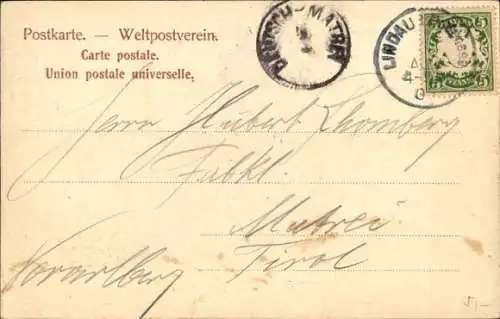 Postkarte. — Weltpostverein.
Carte postale.
Union postale universelle.
LINDAU
5 5
Herrn Hubert
Fabkt.
Matrei
Tirol
Vorarlberg
5,-